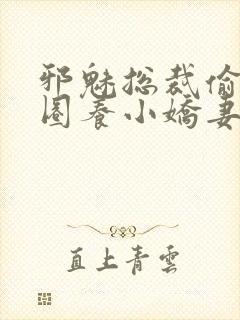 邪魅总裁偷
圈养小嬌妻
直上青雲